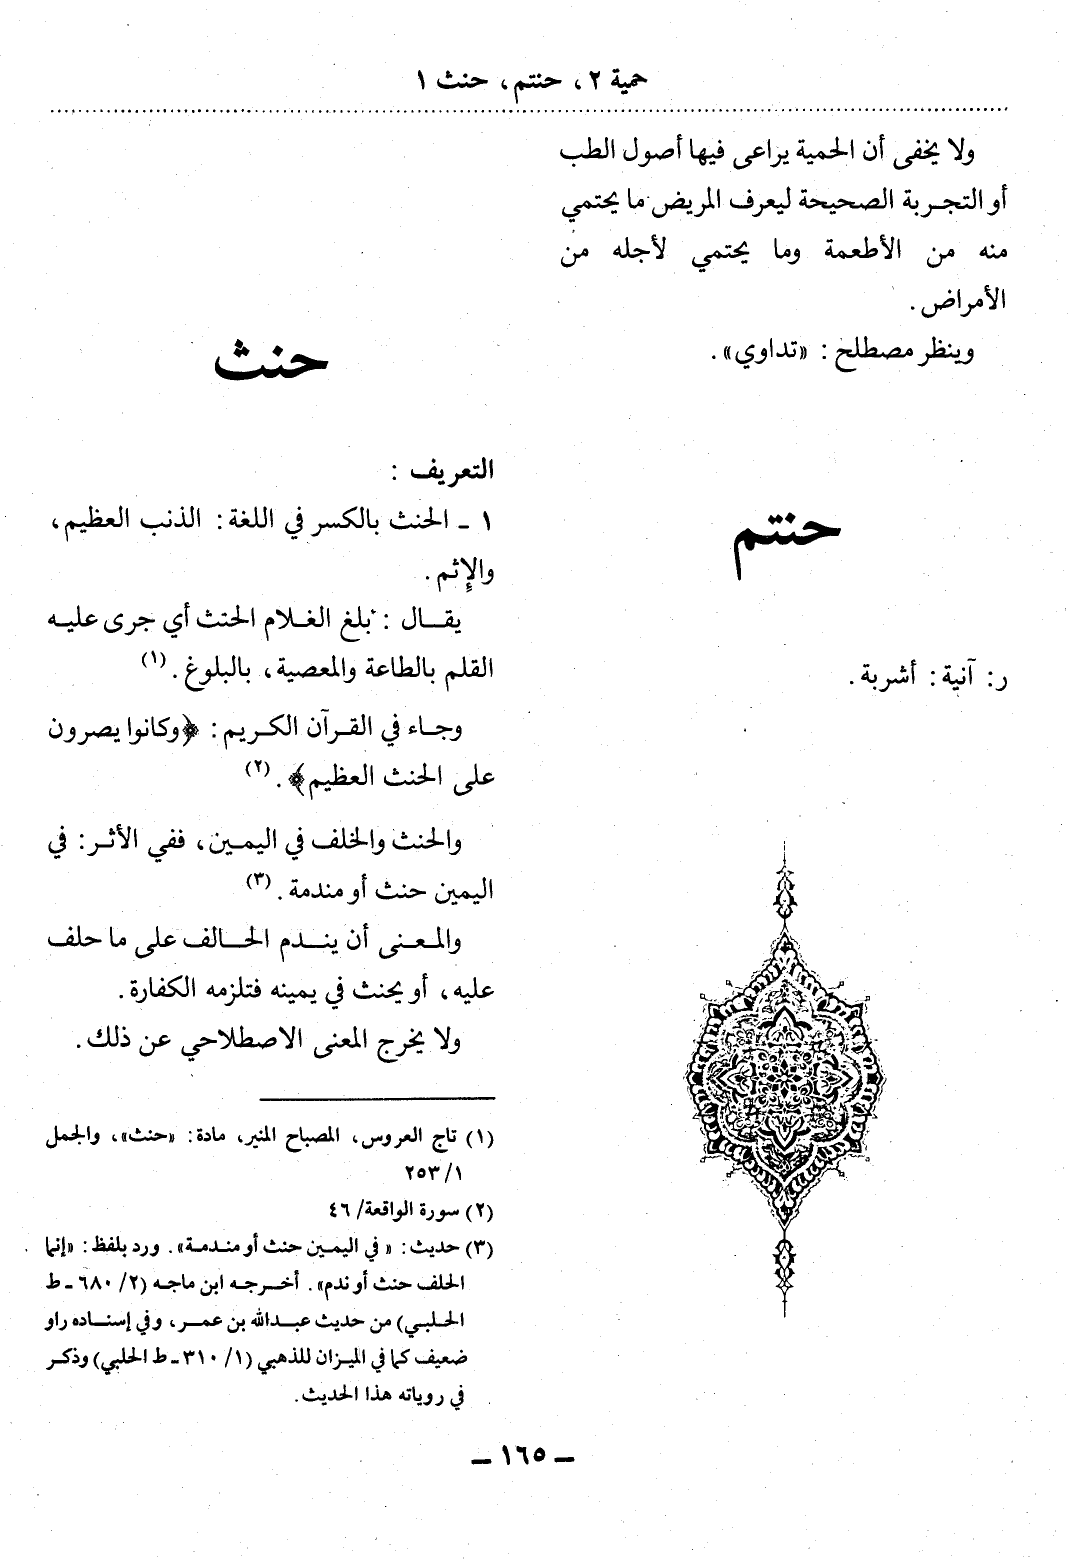 حمية ٢، حنتم، حنث ١
ولا يخفى أن الحمية يراعى فيها أصول الطب
أو التجربة الصحيحة ليعرف المريض ما يحتمي
منه من الأطعمة وما يحتمي لأجله من
الأمراض.
وينظر مصطلح: «تداوي».
حنتم
ر: آنية: أشربة.
حنث
التعريف:
١ - الحنث بالكسر في اللغة: الذنب العظيم،
والإثم.
يقال: بلغ الغلام الحنث أي جرى عليه
القلم بالطاعة والمعصية، بالبلوغ. (١)
وجاء في القرآن الكريم: ﴿وكانوا يصرون
على الحنث العظيم﴾. (٢)
والحنث والخلف في اليمين، ففي الأثر: في
اليمين حنث أو مندمة. (٣)
والمعنى أن يندم الحالف على ما حلف
عليه، أو يحنث في يمينه فتلزمه الكفارة.
ولا يخرج المعنى الاصطلاحي عن ذلك.
(١) تاج العروس، المصباح المنير، مادة: «حنث»، والجمل
١/ ٢٥٣
(٢) سورة الواقعة/ ٤٦
(٣) حديث: « في اليمين حنث أو مندمة». ورد بلفظ: «إنما
الحلف حنث أو ندم». أخرجه ابن ماجه (٢/ ٦٨٠ - ط
الحلبي) من حديث عبدالله بن عمر، وفي إسناده راو
ضعيف كما في الميزان للذهبي (١/ ٣١٠ - ط الحلبي) وذكر
في روياته هذا الحديث.
- ١٦٥ -